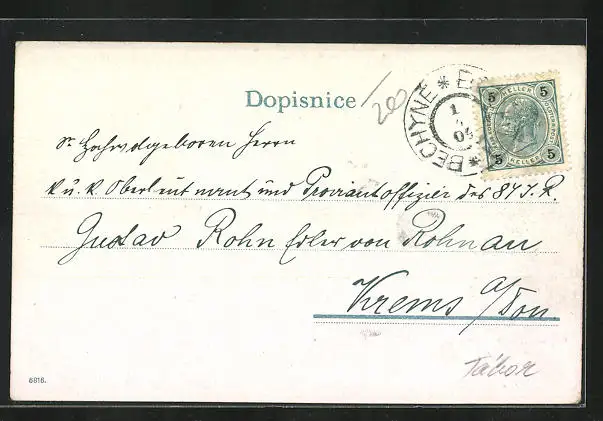 Dopisnice
/200
BECHYNĚ * BE
1
4
04
5 HELLER 5
5 HELLER 5
Sr. Hochwohlgeboren Herrn
k. u. k. Oberleutnant und Proviantoffizier des 84 I. R.
Gustav Rohn Edler von Rohnau
Krems a/Don
Tábor
6816.